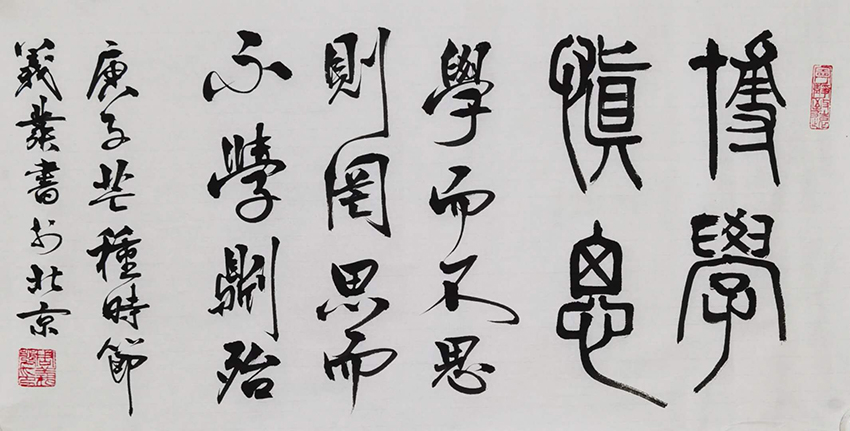 博學
慎思
學而不思
則罔思而
不學則殆
庚子芒種時節
義業書於北京